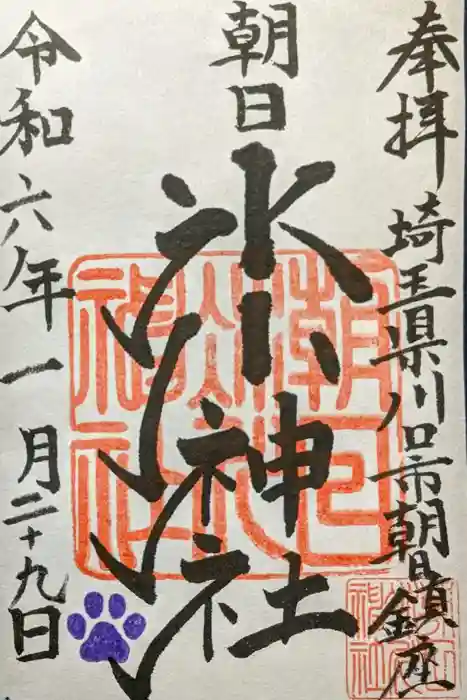 奉拝 埼玉県川口市朝日鎮座
朝日
氷川神社
令和六年一月二十九日